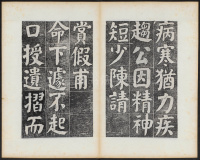 病寒猶力疾
趨公因精神
短少陳請
賞假甫
命下遽不起
口授遺摺而